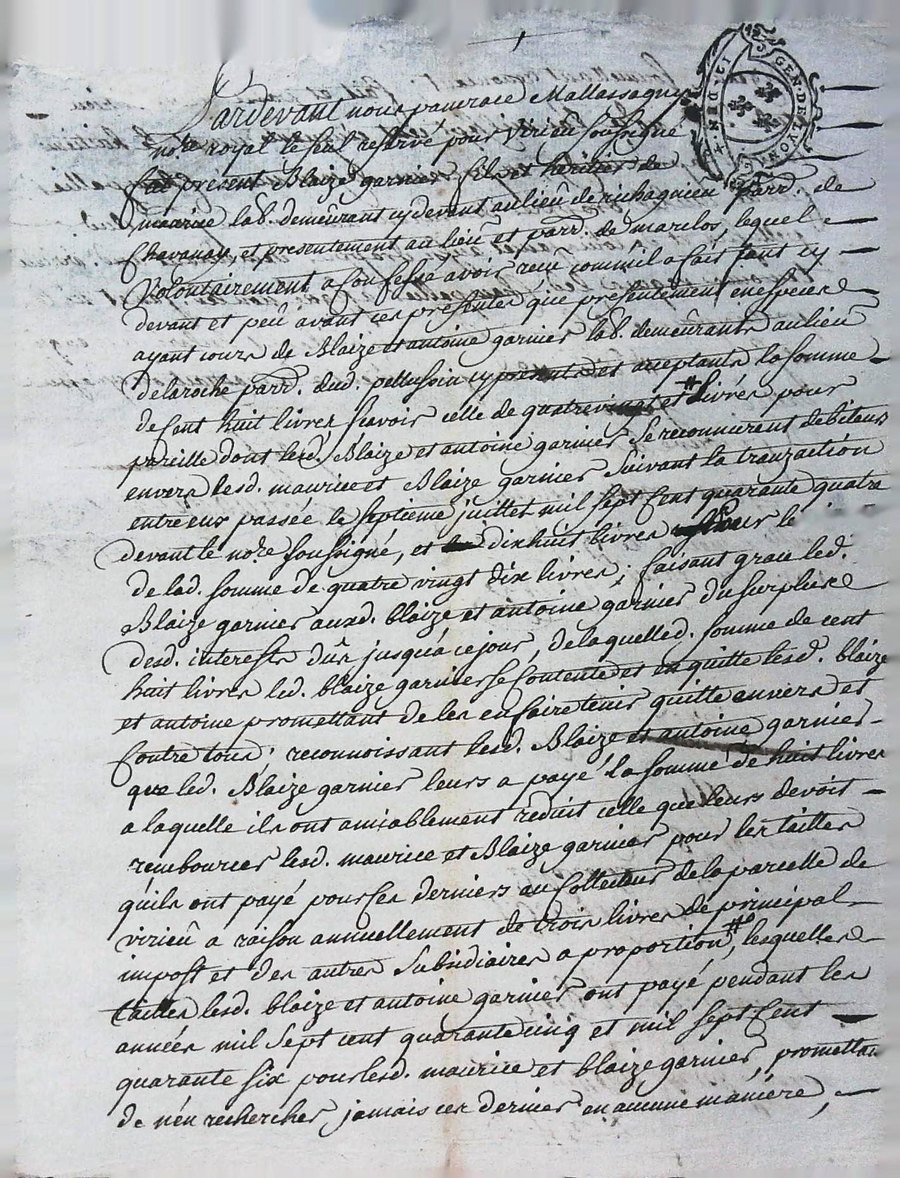 GEN. DE
Pardevant nous pancrace Mallassagny
no.re royal le seul reservé pour virieu soussigné
fut present Blaize garnier fils et heritier de
maurice lab. demeurant cy devant au lieu de richagnieu parr. de
Chavanay et presentement au lieu et parr. de maculos, lequel
Volontairement a Confessé avoir reçu comm'il a fait tant cy
devant et peu avant ces presentes que presentement en especes
ayant cours de Blaize et antoine garnier lab. demeurants au lieu
de laroche parr. dud. pellussin cy presents et acceptants la somme
de Cent huit livres scavoir celle de quatre vingt # livres pour
pareille dont lesd. Blaize et antoine garnier se reconnurent debiteurs
envers lesd. maurice et Blaize garnier suivant la tranzaction
entre eux passée le septieme juillet mil sept Cent quarante quatre
devant le no.re soussigné, et dix huit livres le
de lad. somme de quatre vingt dix livres, faisant grace led.
Blaize garnier auxd. blaize et antoine garnier du surplus
desd. interests dûs jusqu'à ce jour, de laquelle d. somme de cent
huit livres led. blaize garnier se Contente et en quitte lesd. blaize
et antoine promettant de les en faire tenir quitte envers et
Contre tous; reconnoissant lesd. Blaize et antoine garnier
que led. Blaize garnier leurs a payé la somme de huit livres
a laquelle ils ont amiablement reduit celle que leurs devoit
rembourcer lesd. maurice et Blaize garnier pour les tailles
quils ont payé pour ces derniers au Collecteur de la parcelle de
virieu a raison annuellement de trois livres de principal
impost et des autres subsidiaires a proportion #, lesquelles
tailles lesd. blaize et antoine garnier ont payé pendant les
années mil sept cent quarante cinq et mil sept Cent
quarante six pour lesd. maurice et blaize garnier, promettan
de n'en rechercher jamais ces dernier en aucune maniere,